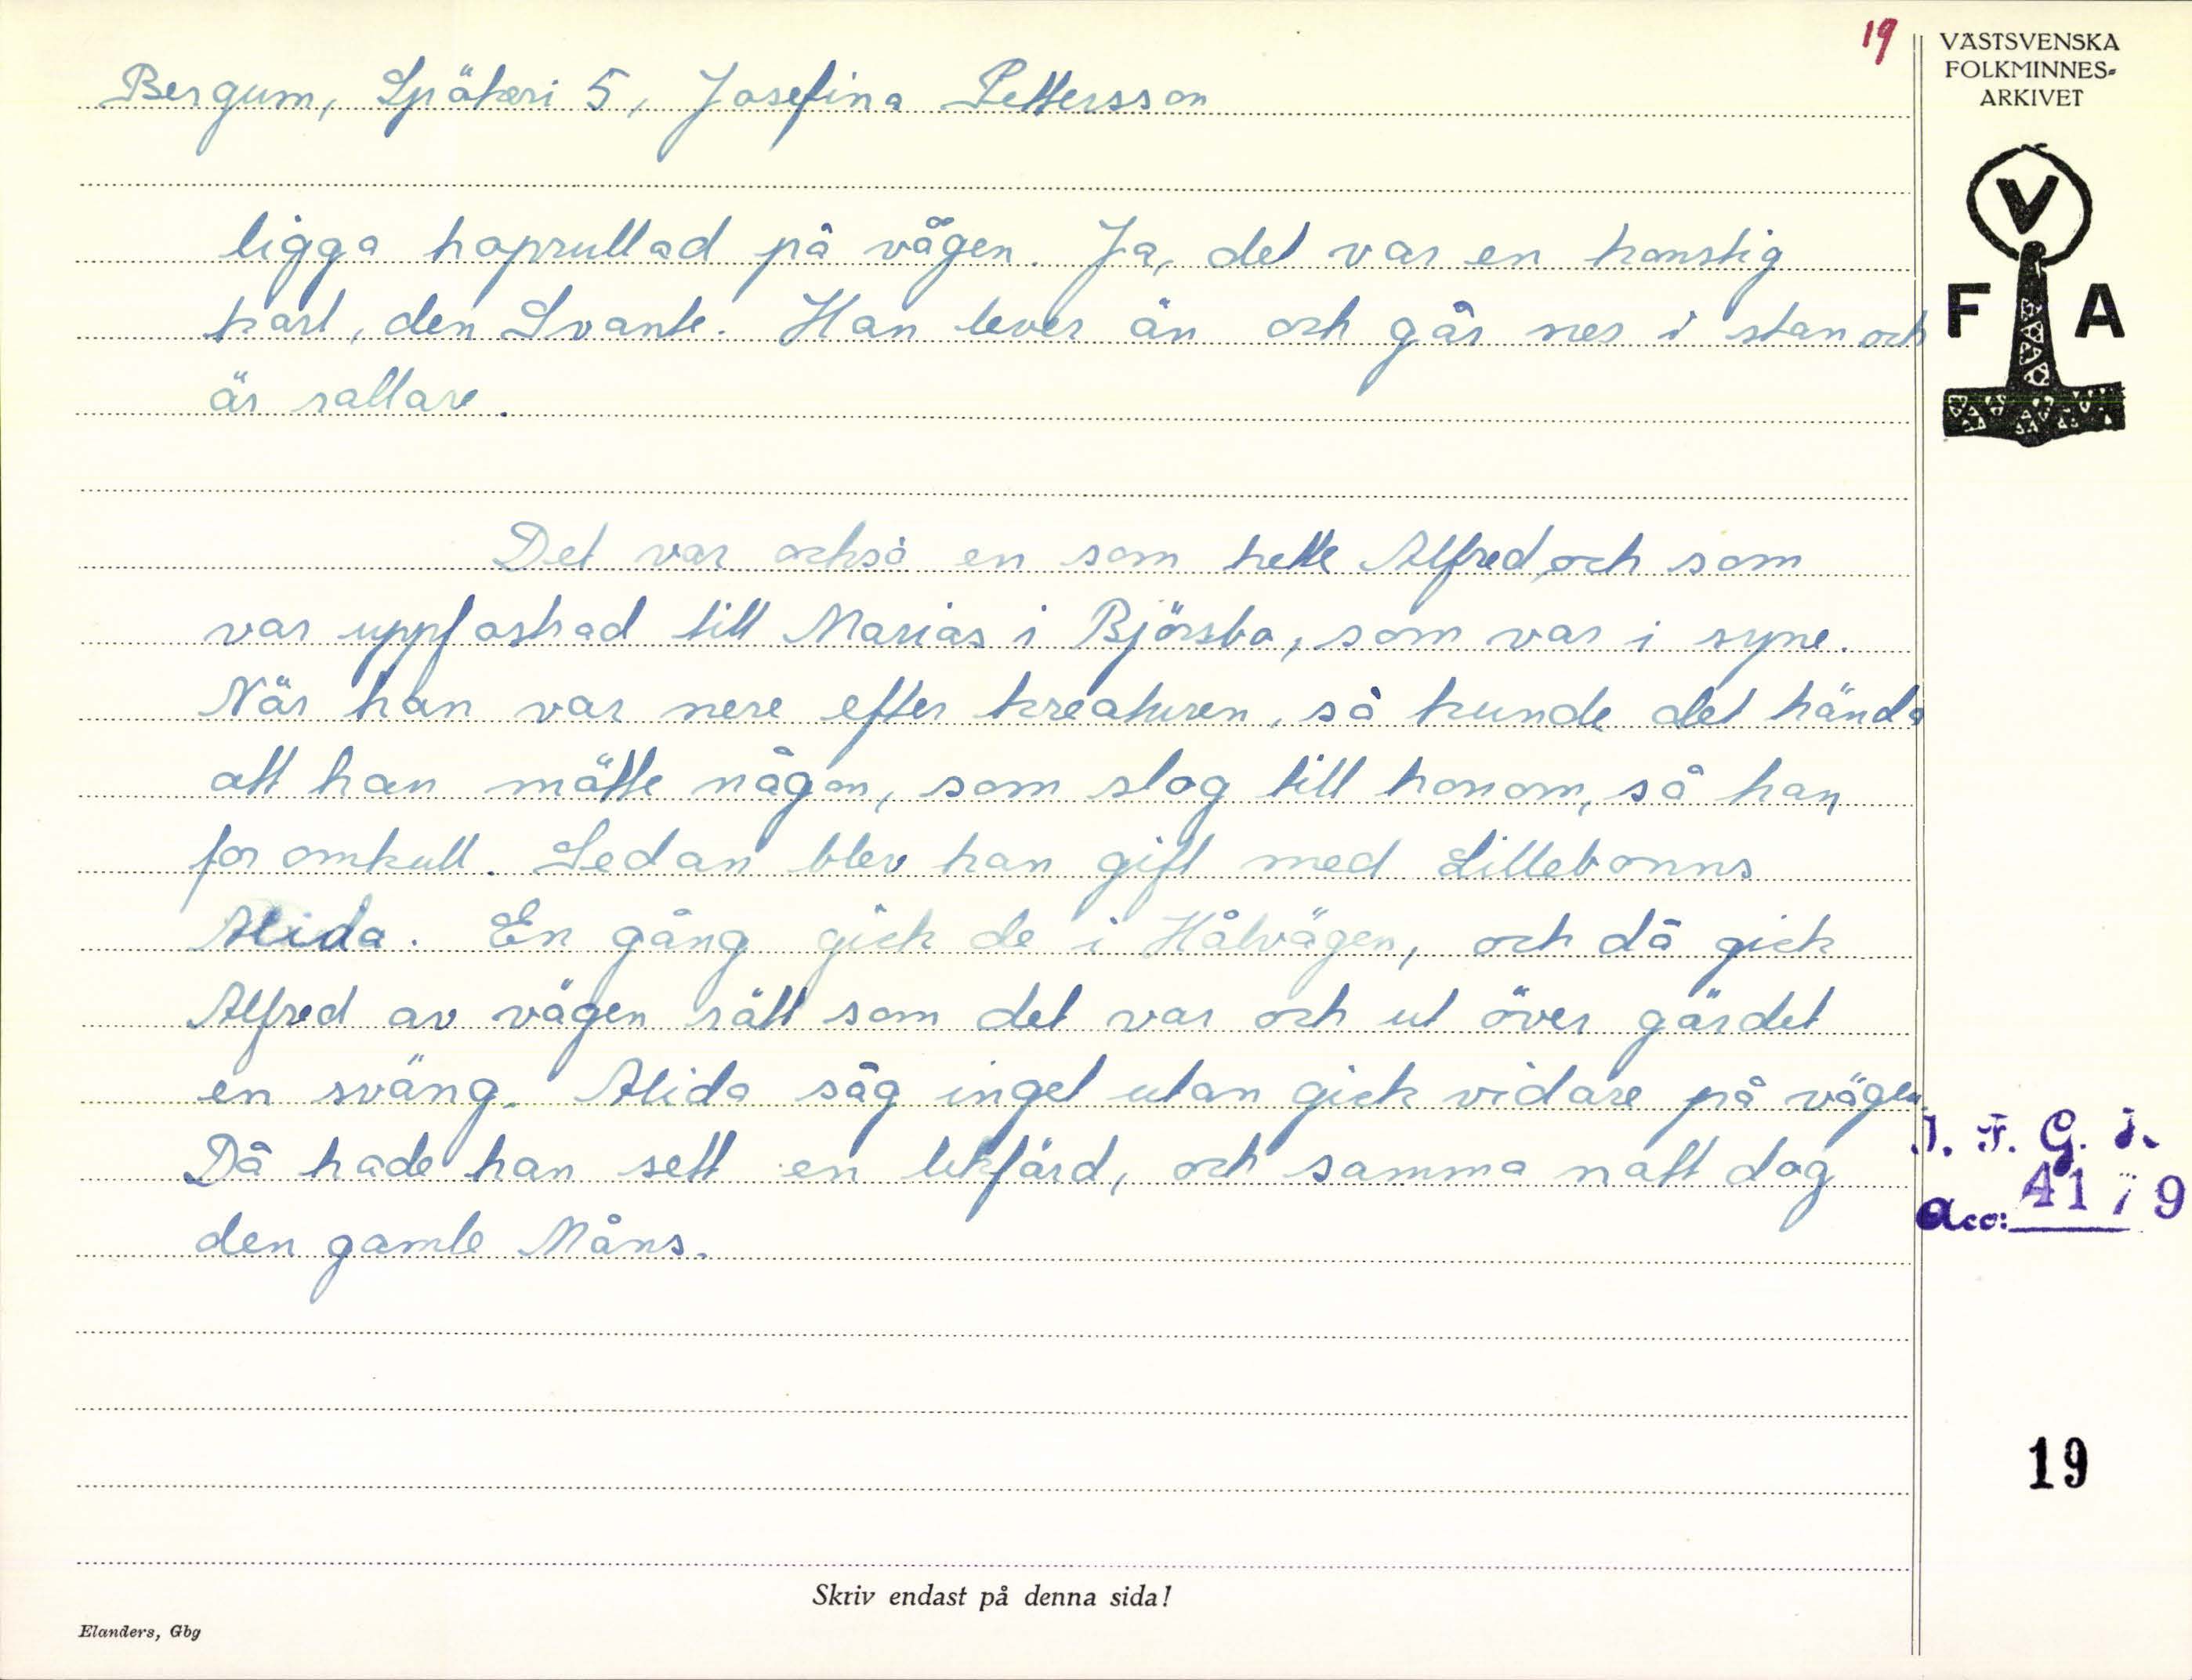 19
VÄSTSVENSKA
FOLKMINNES-
ARKIVET
V
F A
Bergum, Spökeri 5, Josefina Pettersson
ligga hoprullad på vägen. Ja, det var en konstig
karl, den Svante. Han lever än och går ner i stan och
är rallare.
Det var också en som hette Alfred, och som
var uppfostrad till Marias i Björsbo, som var i syne.
När han var nere efter kreaturen, så kunde det hända
att han mötte någon, som slog till honom, så han
for omkull. Sedan blev han gift med Lillebonns
Alida. En gång gick de i Hålvägen, och då gick
Alfred av vägen rätt som det var och ut över gärdet
en sväng. Alida såg inget utan gick vidare på vägen.
Då hade han sett en likfärd, och samma natt dog
den gamle Måns.
I. F. G. H.
Acc: 4179
19
Skriv endast på denna sida!
Elanders, Gbg